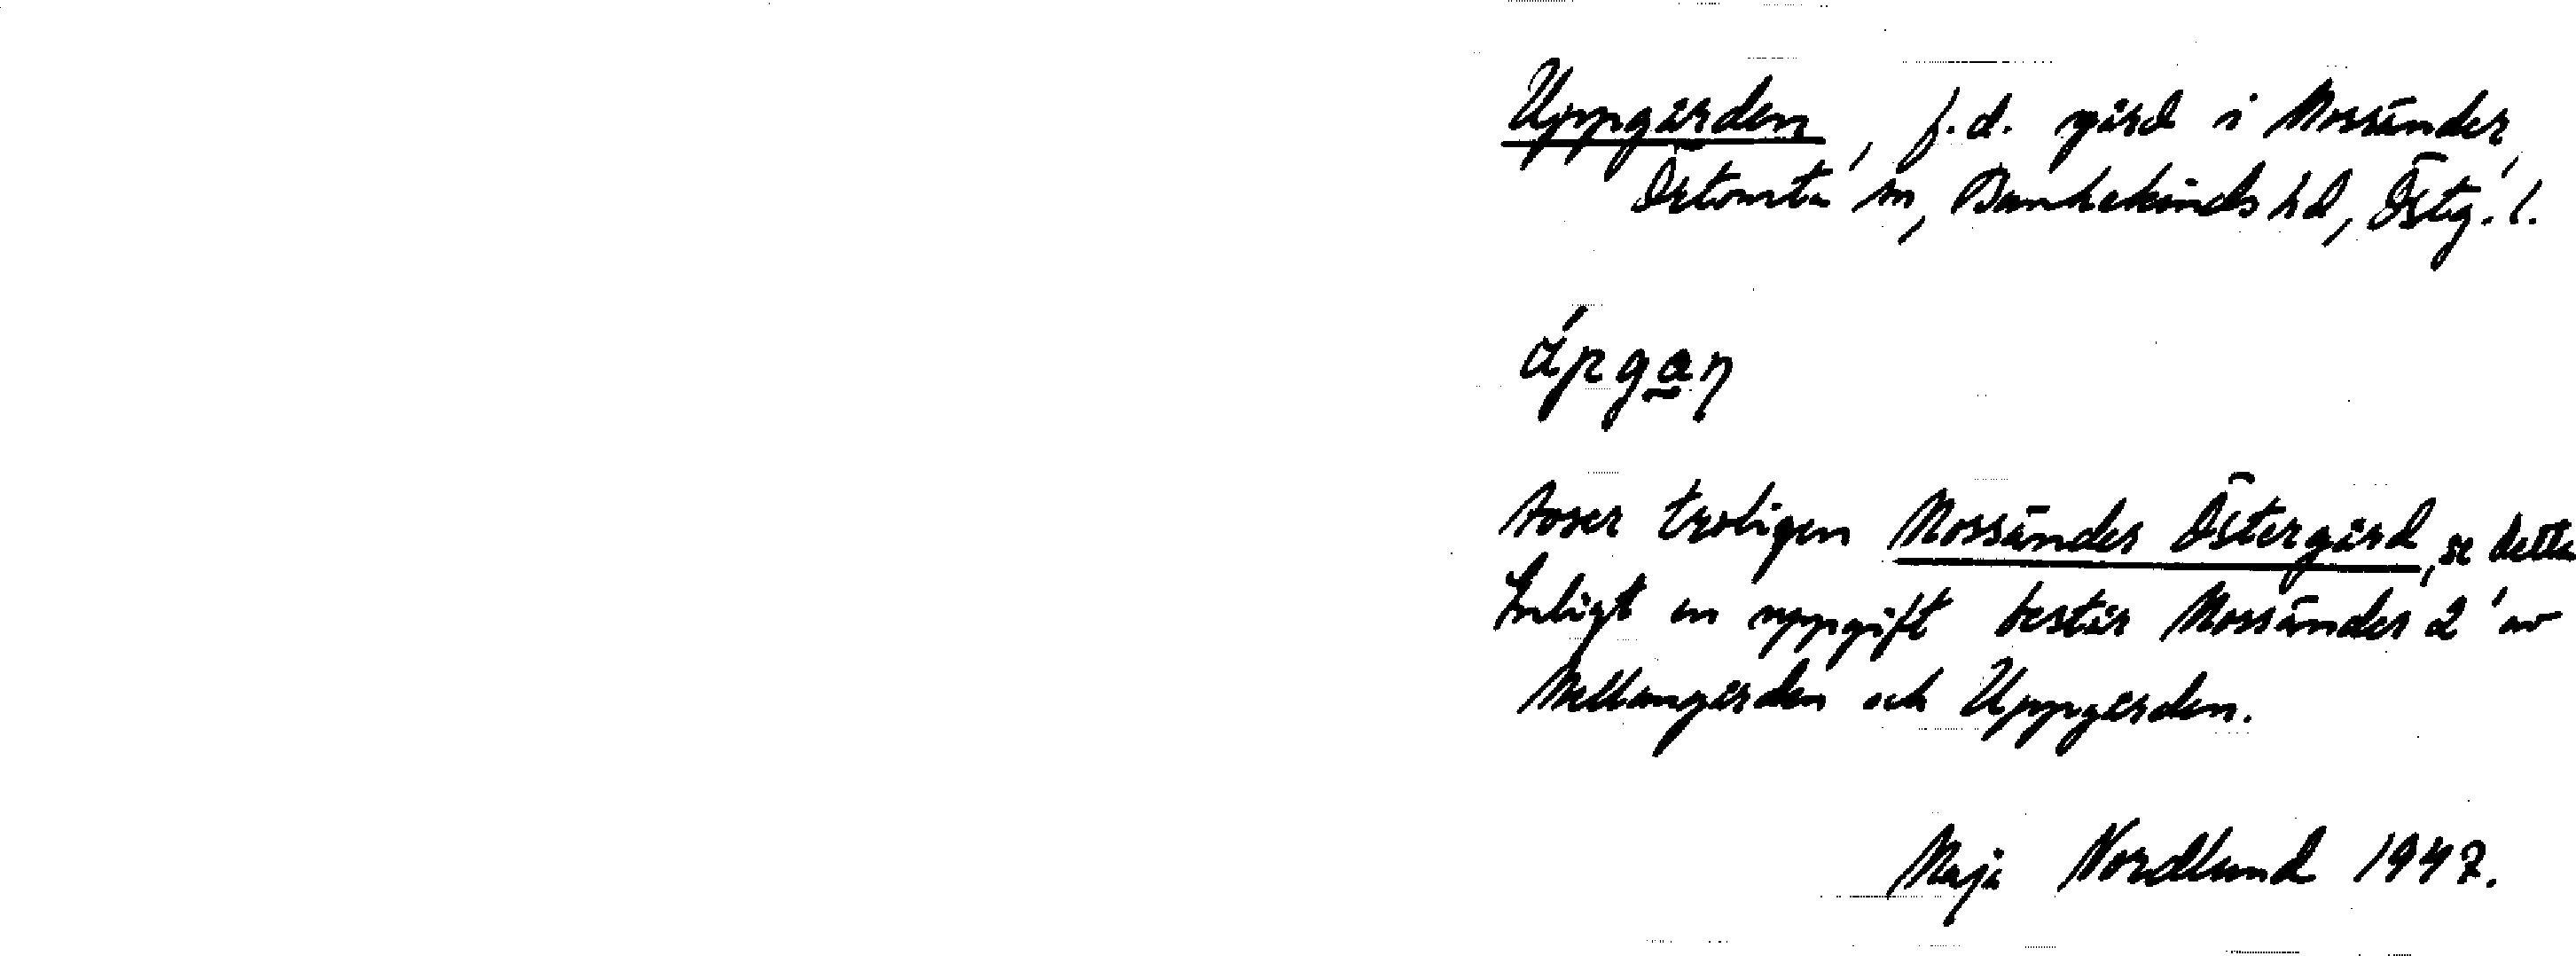 Uppgården, f.d. gård i Mossänder,
Östomta sn, Bankekinds hd, Östg. l.
ápgaη
Avser troligen Mossänder Östergård, se detta
Enligt en uppgift består Mossänder 2 av
Mellangården och Uppgården.
Maja Nordlund 1947.